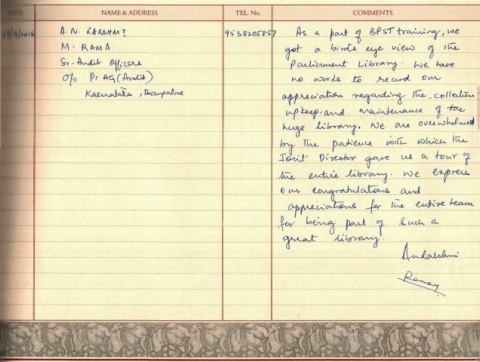 DATE NAME & ADDRESS TEL. No. COMMENTS
A.N. LAKSHMI 9538205857
M. RAMA
Sr. Audit Officers
O/o Pr AG (Audit)
Karnataka, Bangalore
As a part of BPST training, we
got a birds eye view of the
Parliament Library. We have
no words to record our
appreciation regarding the, collection
upkeep and maintenance of the
huge library. We are overwhelmed
by the patience with which the
Joint Director gave us a tour of
the entire library. We express
our congratulations and
appreciations for the entire team
for being part of such a
great library.